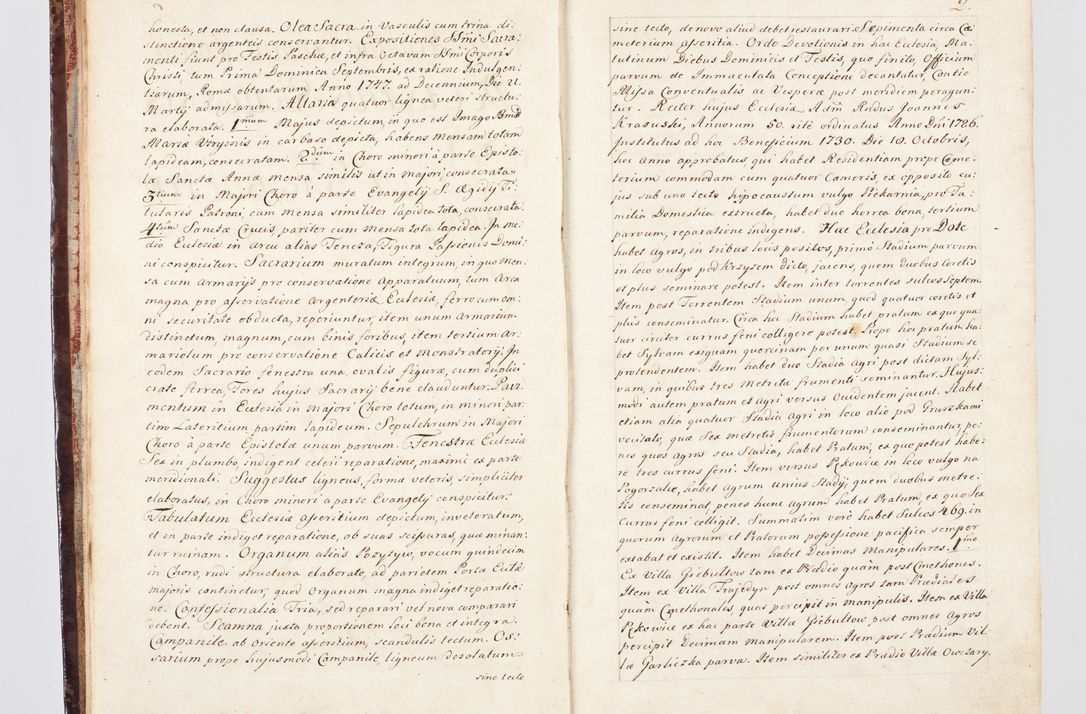 honesta, et non clausa. Olea Sacra in Vasculis cum trina di-
stinctione argenteis conservantur. Expositiones SSmi Sacra-
menti fiunt pro Festis Paschæ, et infra Octavam SSmi Corporis
Christi, tum Prima Dominica Septembris, ex ratione Indulgen-
tiarum, Romæ obtentarum Anno 1747. ad Decennium, Die 21.
Martij admissarum. Altaria quatuor lignea veteri structu-
ra elaborata. 1mum Majus depictum, in quo est Imago Bmæ
Mariæ Virginis in carbaso depicta, habens mensam totam
lapideam, consecratam. 2dum in Choro minori à parte Episto-
læ Sanctæ Annæ mensa similis ut in majori consecrata.
3tium in Majori Choro à parte Evangelij S. Ægidij Ti-
tularis Patroni, cum mensa similiter lapidea tota, consecrata.
4tum Sanctæ Crucis, pariter cum mensa tota lapidea. In me-
dio Ecclesiæ in Arcu alias Tencza, Figura Passionis Domi-
ni conspicitur. Sacrarium muratum integrum, in quo Men-
sa cum Armarijs pro conservatione Apparatuum, tum Arca
magna pro asservatione Argenteriæ Ecclesiæ, ferro cum om-
ni securitate obducta, reperiuntur, item unum Armarium
distinctum, magnum, cum binis foribus, item tertium Ar-
mariolum pro conservatione Calicis et Monstratorij. In
eodem Sacrario fenestra una, ovalis figuræ, cum duplici
crate ferrea, Fores hujus Sacrarij bene clauduntur. Pavi-
mentum in Ecclesia in majori Choro totum, in minori par-
tim Lateritium partim lapideum. Sepulchrum in Majori
Choro à parte Epistolæ unum parvum. Fenestræ Ecclesiæ
Sex in plumbo, indigent celeri reparatione, maximè ex parte
meridionali. Suggestus ligneus, forma veteris, simpliciter
elaboratus, in Choro minori a parte Evangelij conspicitur.
Tabulatum Ecclesiæ asseritium depictum, inveteratum,
et in parte indiget reparatione, ob suas scissuras, quæ minan-
tur ruinam. Organum alias Pozytyw, vocum quindecim
in Choro, rudi structura elaborato, ad parietem Porta Ecclæ
majoris continetur, quod Organum magna indiget reparatio-
ne. Confessionalia Tria, sed reparari vel nova comparari
debent. Scamna juxta proportionem loci bona et integra.
Campanile ab Oriente assertium, scandulis tectum. Os-
sarium prope hujusmodi Campanile, ligneum desolatum
sine tecto
2.
sine tecto, de novo aliud debet restaurari. Sepimenta circa Cæ-
meterium asseritia. Ordo Devotionis in hac Ecclesia, Ma-
tutinum Diebus Dominicis et Festis, quo finito, Officium
parvum de Immaculata Conceptione decantatur, Contio
Missa Conventualis ac Vesperæ post meridiem peragun-
tur. Rector hujus Ecclesiæ Adm Rndus Joannes
Krasuski, Annorum 50. ritè ordinatus Anno Dni 1726.
Institutus ad hoc Beneficium 1730. Die 10. Octobris,
hoc Anno approbatus, qui habet Residentiam prope Cæme-
terium commodam cum quatuor Cameris, ex opposito cu-
jus sub uno tecto hipocaustum vulgo Piekarnia, pro Fa-
milia Domestica extructa, habet duo horrea bona, tertium
parvum, reparatione indigens. Hæc Ecclesia pro Dote
habet Agros, in tribus locis positos, primo Stadium parvum
in loco vulgo pod Krzyzem dicto, jacens, quem duobus coretis
et plus seminare potest. Item inter torrentes sulcos septem.
Item post Torrentem Stadium unum, quod quatuor coretis et
plus conseminatur. Circa hoc Stadium habet pratum ex quo qua-
tuor circiter currus feni colligere potest. Prope hoc pratum ha-
bet Sylvam exiguam quercinam per unum quasi Stadium se
protendentem. Item habet duo Stadia Agri post dictam Syl-
vam, in quibus tres Metretæ frumenti seminantur. Hujus-
modi autem pratum et Agri versus Occidentem jacent. Habet
etiam alia quatuor Stadia Agri in loco alio pod Gruszkami
vocitato, quæ Sex metretis frumentorum conseminantur pe-
nes quos Agros seu Stadia, habet Pratum, ex quo potest habe-
re tres currus feni. Item versus Rękowice in loco vulgo na
Pogorzalce, habet Agrum Unius Stadij, quem duabus metre-
tis conseminat, penes hunc Agrum habet Pratum, ex quo Sex
Currus feni colligit. Summatim verò habet Sulcos 469. in
quorum Agrorum et Pratorum possessione pacifica semper
extabat et existit. Item habet Decimas Manipulares. 1mo
Ex Villa Giebułtow tam ex Prædio quàm post Cmethones.
Item ex Villa Trajedyn post omnes Agros tam Prædiales
quàm Cmethonales, quas percipit in manipulis. Item ex Villa
Rękowice ex hac parte Villæ Giebułtow post omnes Agros
percipit Decimam manipularem. Item post Prædium Vil-
læ Garliczka parva. Item similiter ex Prædio Villæ Owczary.